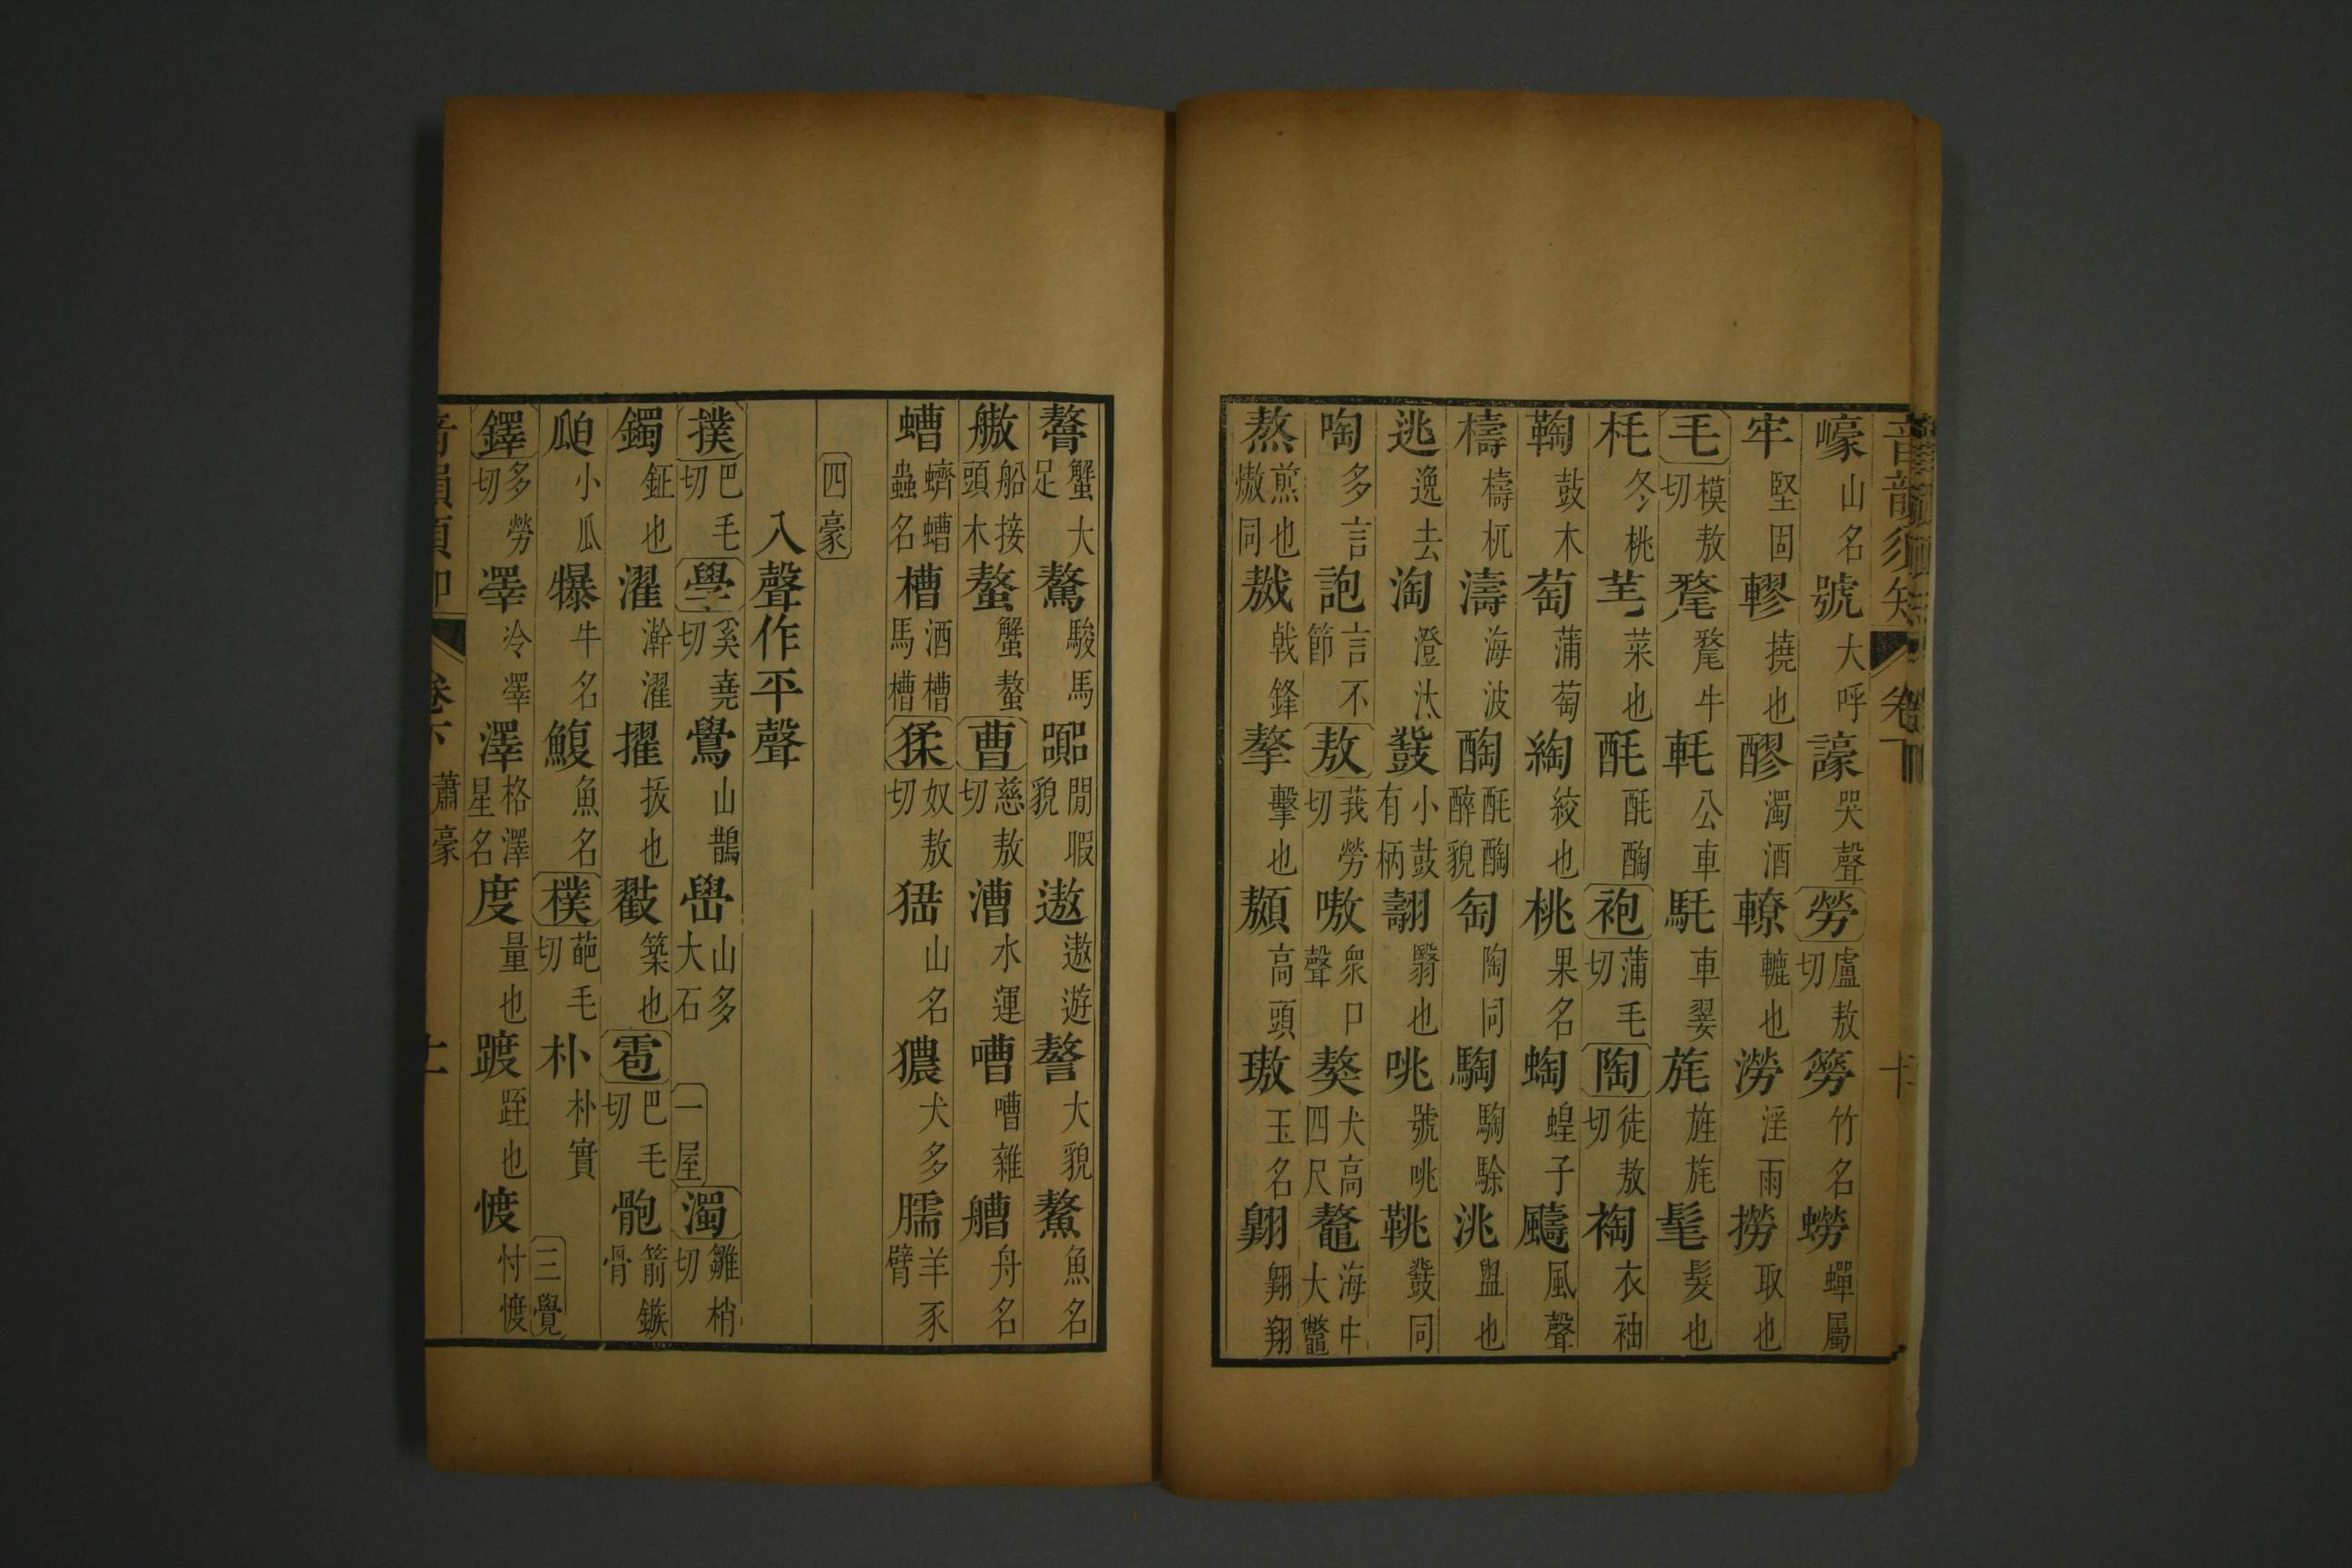 音韻須知 卷下 十
嚎山名 號大呼 譹哭聲 勞盧敖切 簩竹名 蟧蟬屬
牢堅固 轇撓也 醪濁酒 轑轆也 澇淫雨 撈取也
毛模敖切 氂氂牛 軞公車 髦髮也 旄旌旄
枆冬桃 芼菜也 酕酕醄 袍蒲毛切 陶徒敖切 裪衣袖
鞠鼓木 萄蒲萄 綯絞也 桃果名 蜪蝗子 飍風聲
檮檮杌 濤海波 醄酕醄醉貌 匋陶同 騊騊駼 洮盥也
逃逸去 淘澄汰 鼗小鼓有柄 翿翳也 咷號咷 鞉鼗同
啕多言 詢言不節 敖莪勞切 嗷衆口聲 獒犬高四尺 鼇海中大鼈
熬煎也熮同 戟鋒 摮擊也 顤高頭 璈玉名 翱翱翔
螯蟹大足 驁駿馬 閒暇貌 遨遨遊 謷大貌 鰲魚名
艘船接頭木 螯蟹螯 曹慈敖切 漕水運 嘈嘈雜 艚舟名
螬蠐螬蟲名 槽酒槽馬槽 猱奴敖切 峱山名 獿犬多 臑羊豕臂
四豪
入聲作平聲
撲巴毛切 學奚堯切 鷽山鵲 嶨山多大石 一屋 濁雛梢切
鐲鉦也 濯澣濯 擢拔也 戳築也 雹巴毛切 骲箭鏃骨
瓝小瓜 犦牛名 鰒魚名 樸葩毛切 朴朴實 三覺
鐸多勞切 凙冷凙 澤格澤星名 度量也 踱跮也 㦜忖㦜
音韻須知 卷下 蕭豪 十一